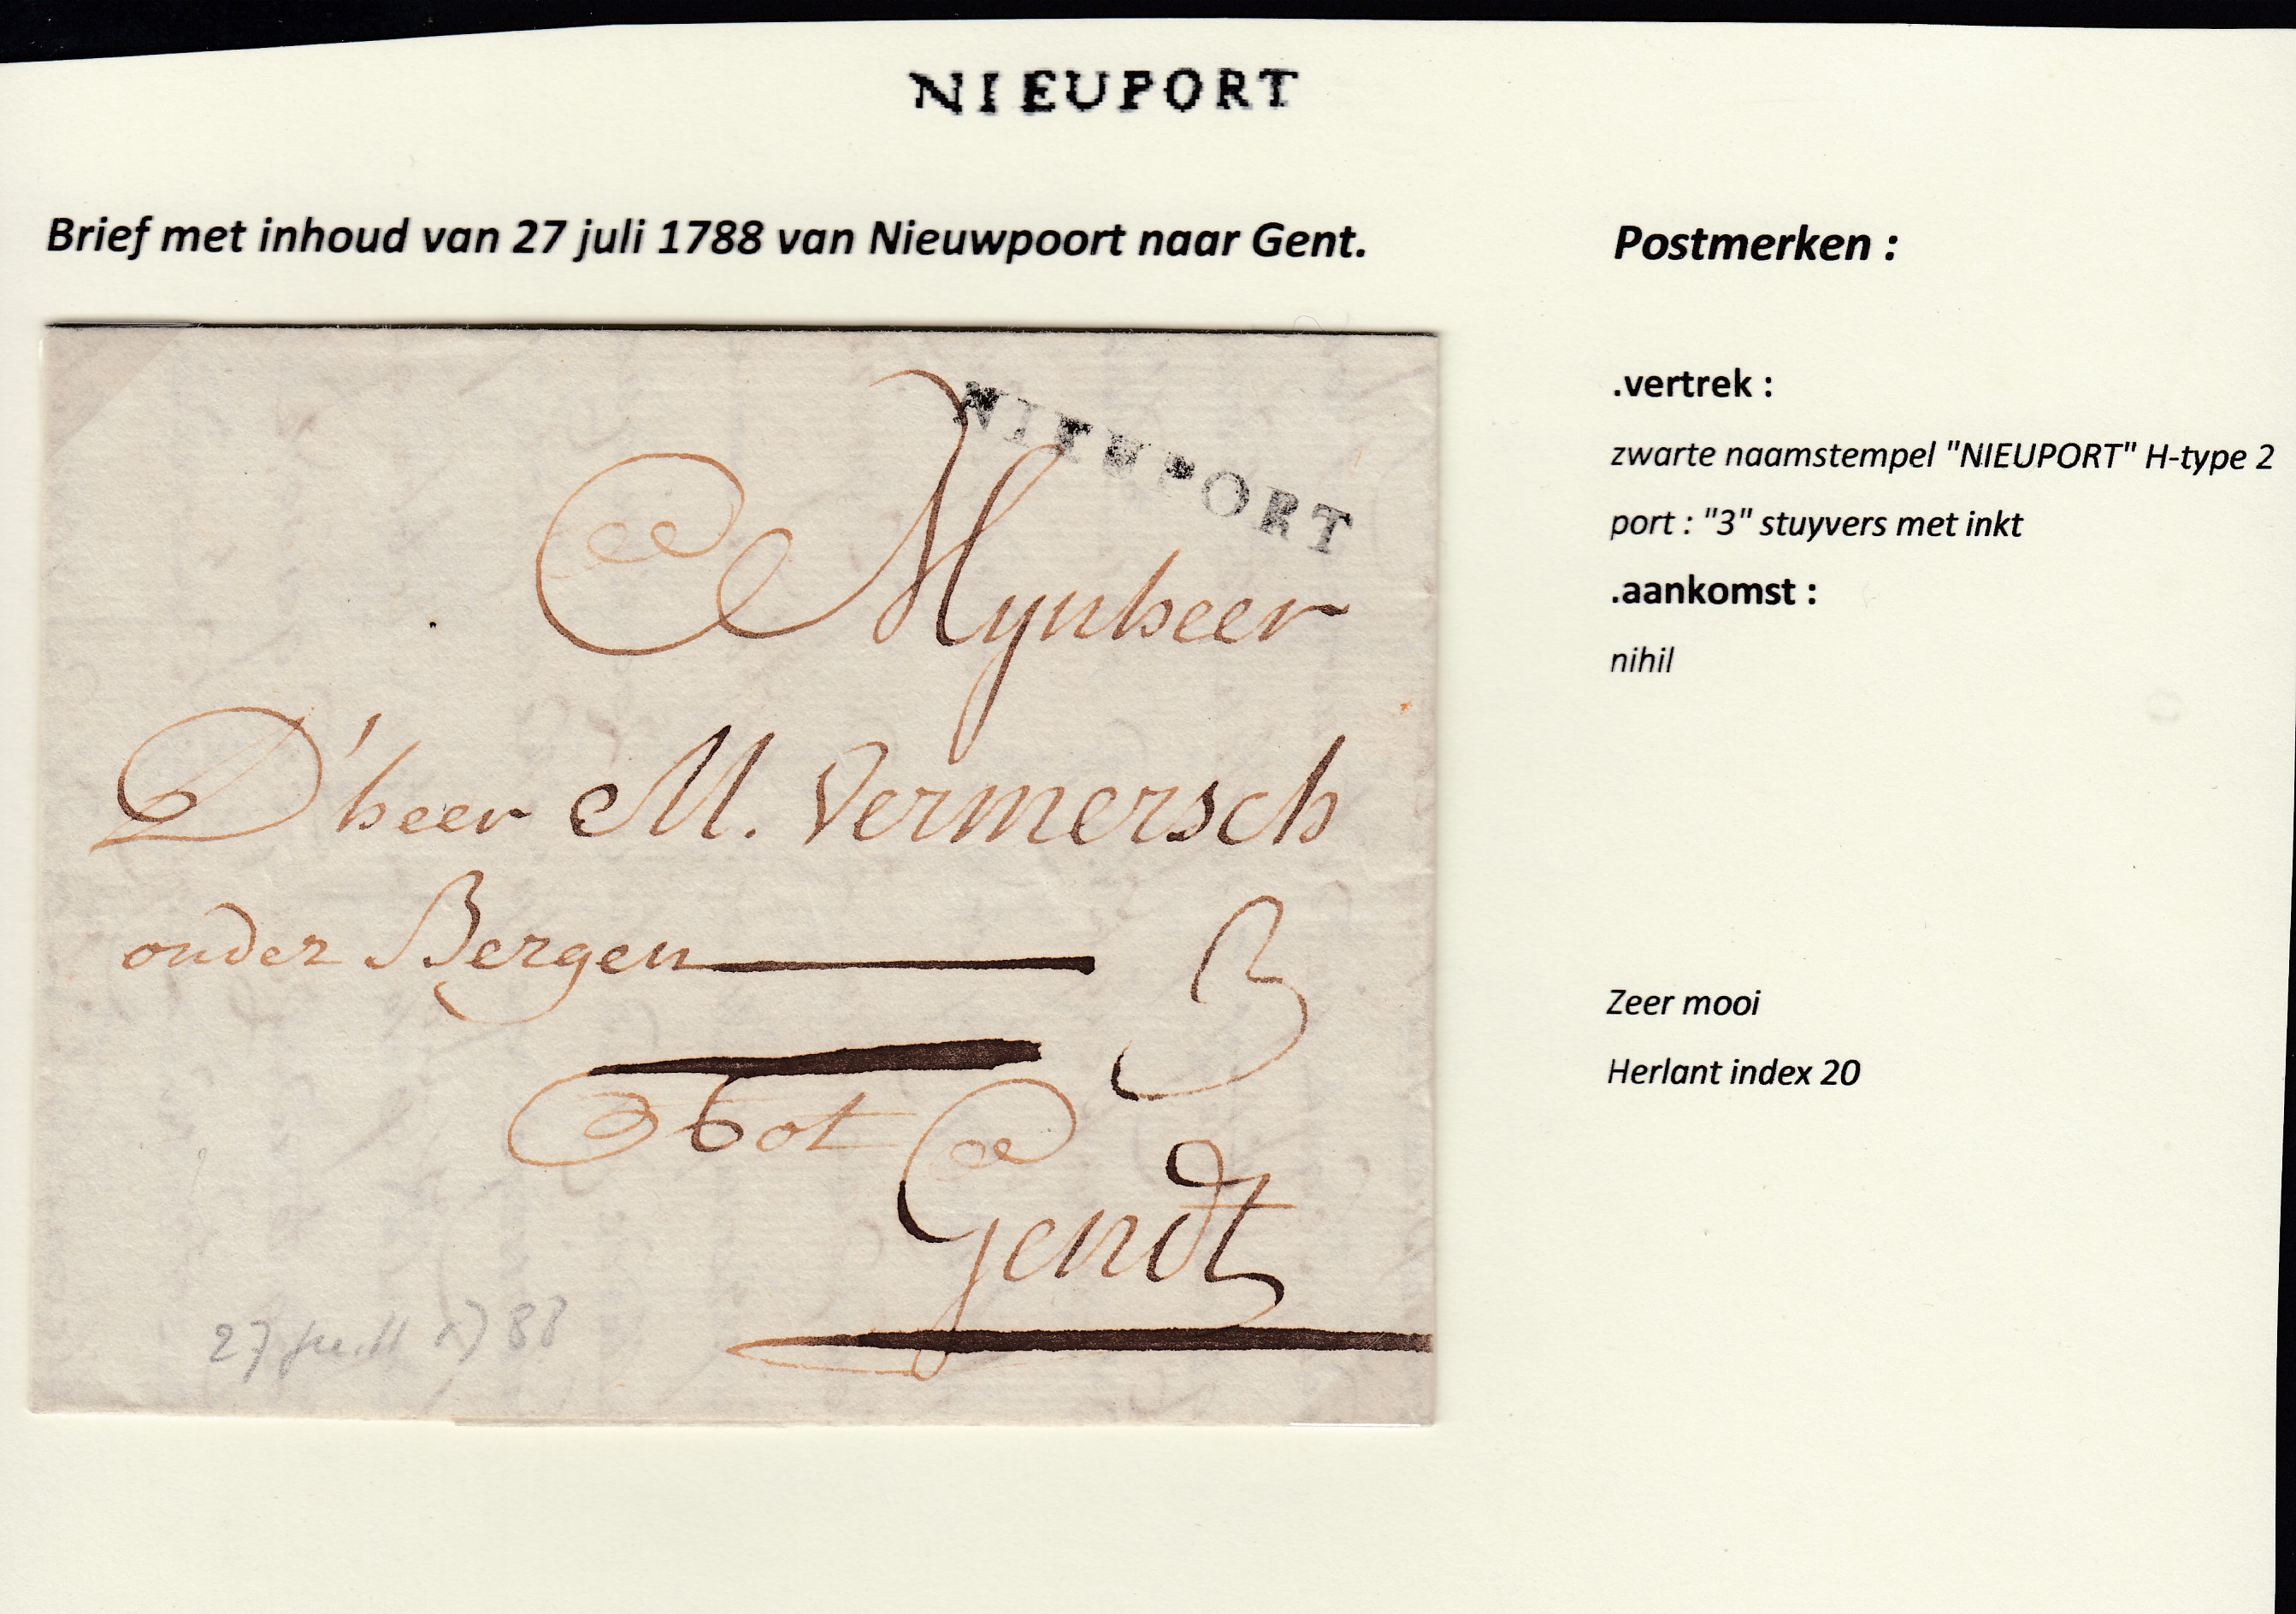 NIEUPORT
Brief met inhoud van 27 juli 1788 van Nieuwpoort naar Gent.
NIEUPORT
Mynheer
D'heer M. Vermersch
onder Bergen
3
Tot
Gendt
27 juill 1788
Postmerken :
.vertrek :
zwarte naamstempel "NIEUPORT" H-type 2
port : "3" stuyvers met inkt
.aankomst :
nihil
Zeer mooi
Herlant index 20